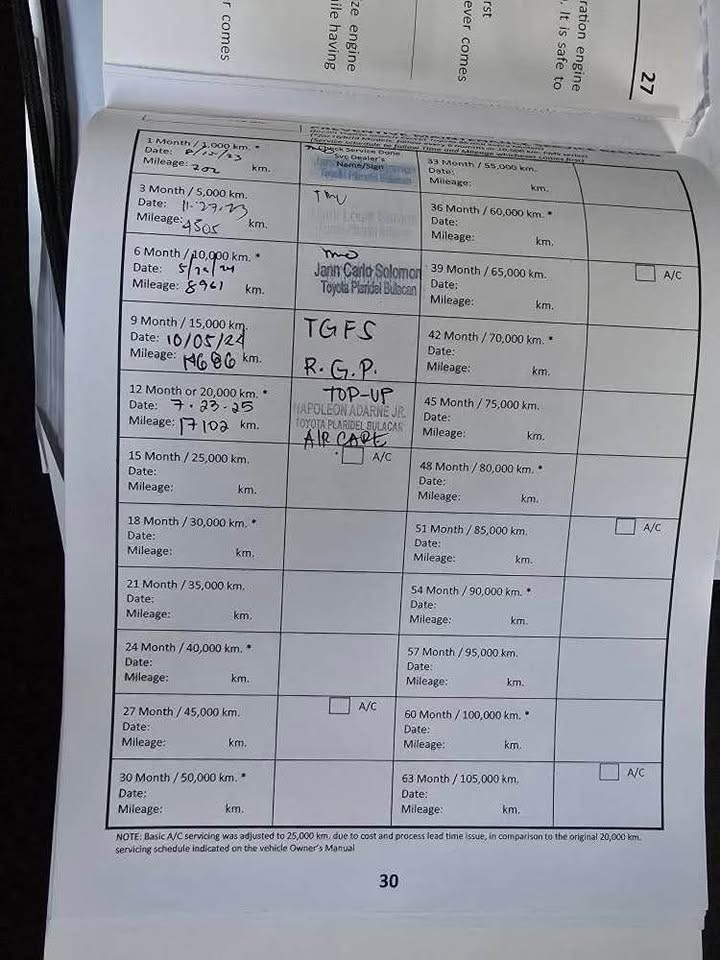 27
ration engine
. It is safe to
rst
ever comes
ze engine
ile having
r comes
1 Month / 1,000 km. *
Date:
Mileage: 202 km.
Svc Dealer's
Name/Sign
3 Month / 5,000 km.
Date: 11-27-23
Mileage: 4505 km.
6 Month / 10,000 km. *
Date:
Mileage: 8961 km.
Jann Carlo Solomon
Toyota Plaridel Bulacan
9 Month / 15,000 km.
Date: 10/05/24
Mileage: 14686 km.
TGFS
R.G.P.
12 Month or 20,000 km. *
Date: 7.23.25
Mileage: 17102 km.
TOP-UP
NAPOLEON ADARNE JR.
TOYOTA PLARIDEL BULACAN
AIR CARE
15 Month / 25,000 km.
Date:
Mileage: km.
A/C
18 Month / 30,000 km. *
Date:
Mileage: km.
21 Month / 35,000 km.
Date:
Mileage: km.
24 Month / 40,000 km. *
Date:
Mileage: km.
27 Month / 45,000 km.
Date:
Mileage: km.
A/C
30 Month / 50,000 km. *
Date:
Mileage: km.
33 Month / 55,000 km.
Date:
Mileage: km.
36 Month / 60,000 km. *
Date:
Mileage: km.
39 Month / 65,000 km.
Date:
Mileage: km.
A/C
42 Month / 70,000 km. *
Date:
Mileage: km.
45 Month / 75,000 km.
Date:
Mileage: km.
48 Month / 80,000 km. *
Date:
Mileage: km.
51 Month / 85,000 km.
Date:
Mileage: km.
A/C
54 Month / 90,000 km. *
Date:
Mileage: km.
57 Month / 95,000 km.
Date:
Mileage: km.
60 Month / 100,000 km. *
Date:
Mileage: km.
63 Month / 105,000 km.
Date:
Mileage: km.
A/C
NOTE: Basic A/C servicing was adjusted to 25,000 km. due to cost and process lead time issue, in comparison to the original 20,000 km.
servicing schedule indicated on the vehicle Owner's Manual
30